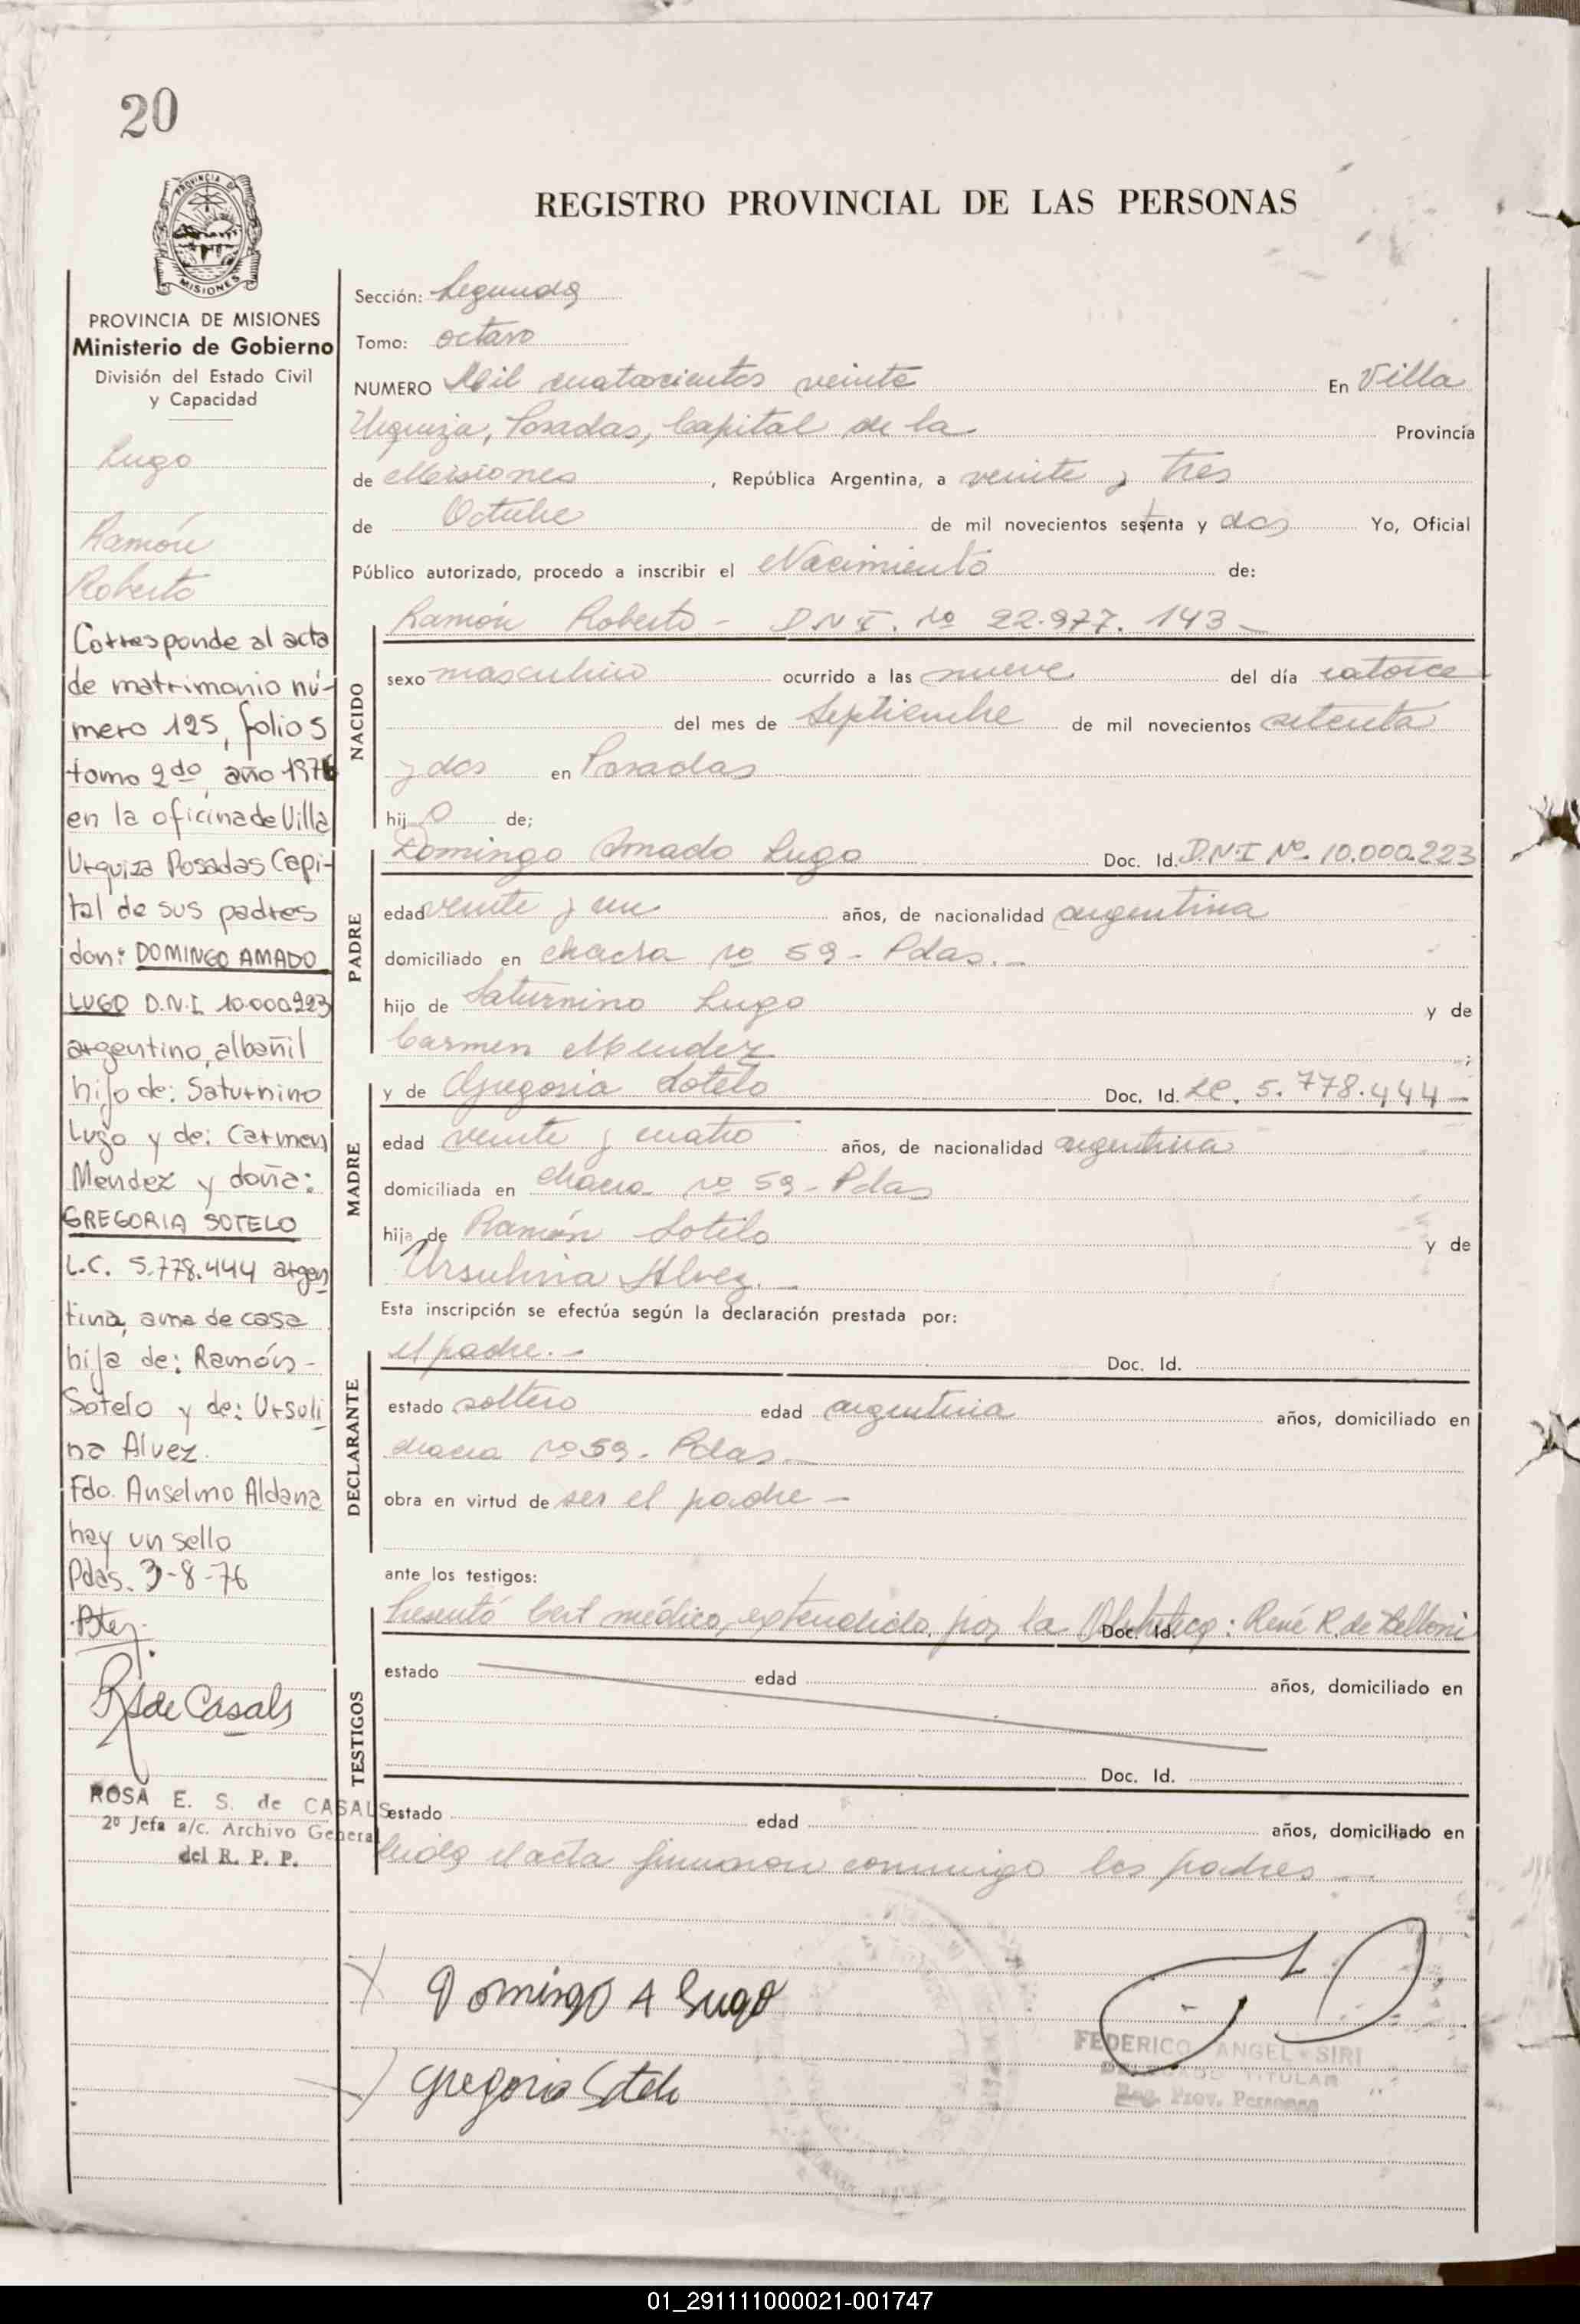 20
REGISTRO PROVINCIAL DE LAS PERSONAS
PROVINCIA DE MISIONES
Ministerio de Gobierno
División del Estado Civil
y Capacidad
Lugo
Ramón
Roberto
Corresponde al acta
de matrimonio nú-
mero 125, folio 5
tomo 2do, año 1976
en la oficina de Villa
Urquiza Posadas Capi-
tal de sus padres
don: DOMINGO AMADO
LUGO D.N.I. 10.000.223
argentino, albañil
hijo de: Saturnino
Lugo y de: Carmen
Mendez y doña:
GREGORIA SOTELO
L.C. 5.778.444 argen
tina, ama de casa
hija de: Ramón-
Sotelo y de: Ursuli
na Alvez.
Fdo. Anselmo Aldana
hay un sello
Pdas. 3-8-76
RS de Casals
ROSA E. S. de CASALS
2º Jefa a/c. Archivo General
del R. P. P.
Sección: Segunda
Tomo: octavo
NUMERO Mil cuatrocientos veinte En Villa
Urquiza, Posadas, Capital de la Provincia
de Misiones, República Argentina, a veinte y tres
de Octubre de mil novecientos setenta y dos Yo, Oficial
Público autorizado, procedo a inscribir el Nacimiento de:
Ramón Roberto - D.N.I. no 22.977.143 -
NACIDO
sexo masculino ocurrido a las nueve del día catorce
del mes de Septiembre de mil novecientos setenta
y dos en Posadas
hijo de;
Domingo Amado Lugo Doc. Id. D.N.I Nº. 10.000.223
PADRE
edad veinte y un años, de nacionalidad argentina
domiciliado en chacra no 59 - Pdas. -
hijo de Saturnino Lugo y de
Carmen Mendez ;
y de Gregoria Sotelo Doc. Id. LC. 5.778.444 -
MADRE
edad veinte y cuatro años, de nacionalidad argentina
domiciliada en chacra no 59 - Pdas
hija de Ramón Sotelo y de
Ursulina Alvez. -
Esta inscripción se efectúa según la declaración prestada por:
el padre. - Doc. Id.
DECLARANTE
estado soltero edad argentina años, domiciliado en
chacra no 59 - Pdas. -
obra en virtud de ser el padre -
ante los testigos:
Presentó Cert médico, extendido, por la Obstetica: René R. de Belloni
Doc. Id.
TESTIGOS
estado edad años, domiciliado en
Doc. Id.
estado edad años, domiciliado en
Leída el acta firmaron conmigo los padres -
Domingo A Lugo
Gregoria Sotelo
FEDERICO ANGEL SIRI
DELEGADO TITULAR
Reg. Prov. Personas
01_291111000021-001747